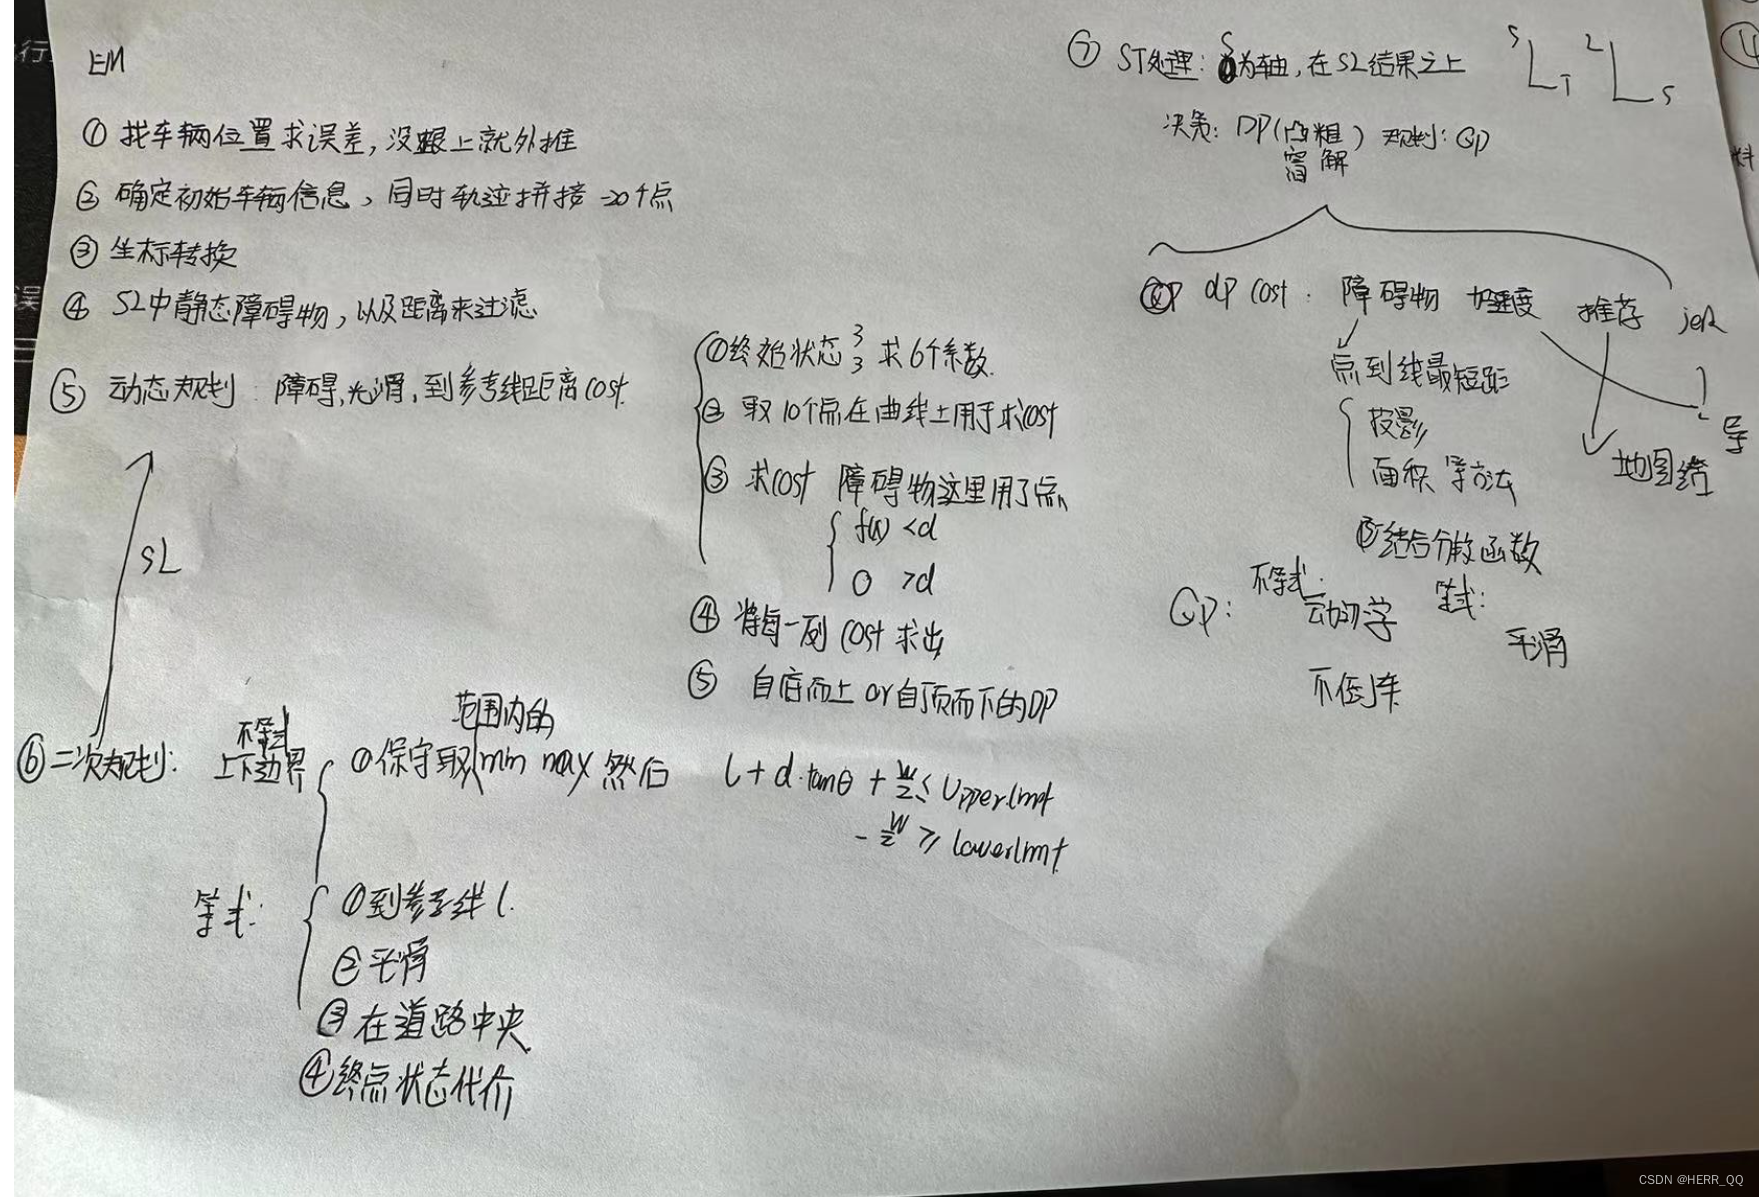 EM
① 找车辆位置求误差,没跟上就外推
② 确定初始车辆信息,同时轨迹拼接 20个点
③ 坐标转换
④ SL中静态障碍物,以及距离来过滤
⑤ 动态规划: 障碍,光滑,到参考线距离cost.
SL
①终始状态 3 3 求6个系数.
② 取10个点在曲线上用于求cost
③ 求cost 障碍物这里用了点
f(x) <d
0 >d
④ 将每一列cost求出
⑤ 自底而上 or 自顶而下的DP
⑥二次规划:
不等式
上下边界
范围内的
①保守取 min max 然后
l + d·tanθ + w/2 ≤ Upperlmt
- w/2 ≥ lowerlmt
等式:
①到参考线 l.
②平滑
③在道路中央
④终点状态代价
⑦ ST处理: S为轴,在SL结果之上
S T
L S
决策: DP(凸粗) 规划: QP
解
dp cost: 障碍物 加速度 推荐 jerk
点到线最短距
投影
面积 等方法
导
地图给
结合分段函数
QP:
不等式:
动力学
不倒车
等式:
平滑
④
行
误
料
CSDN @HERR_QQ